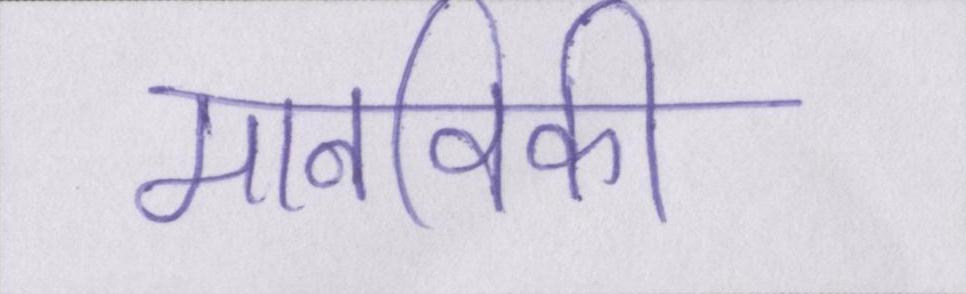 मानविकी